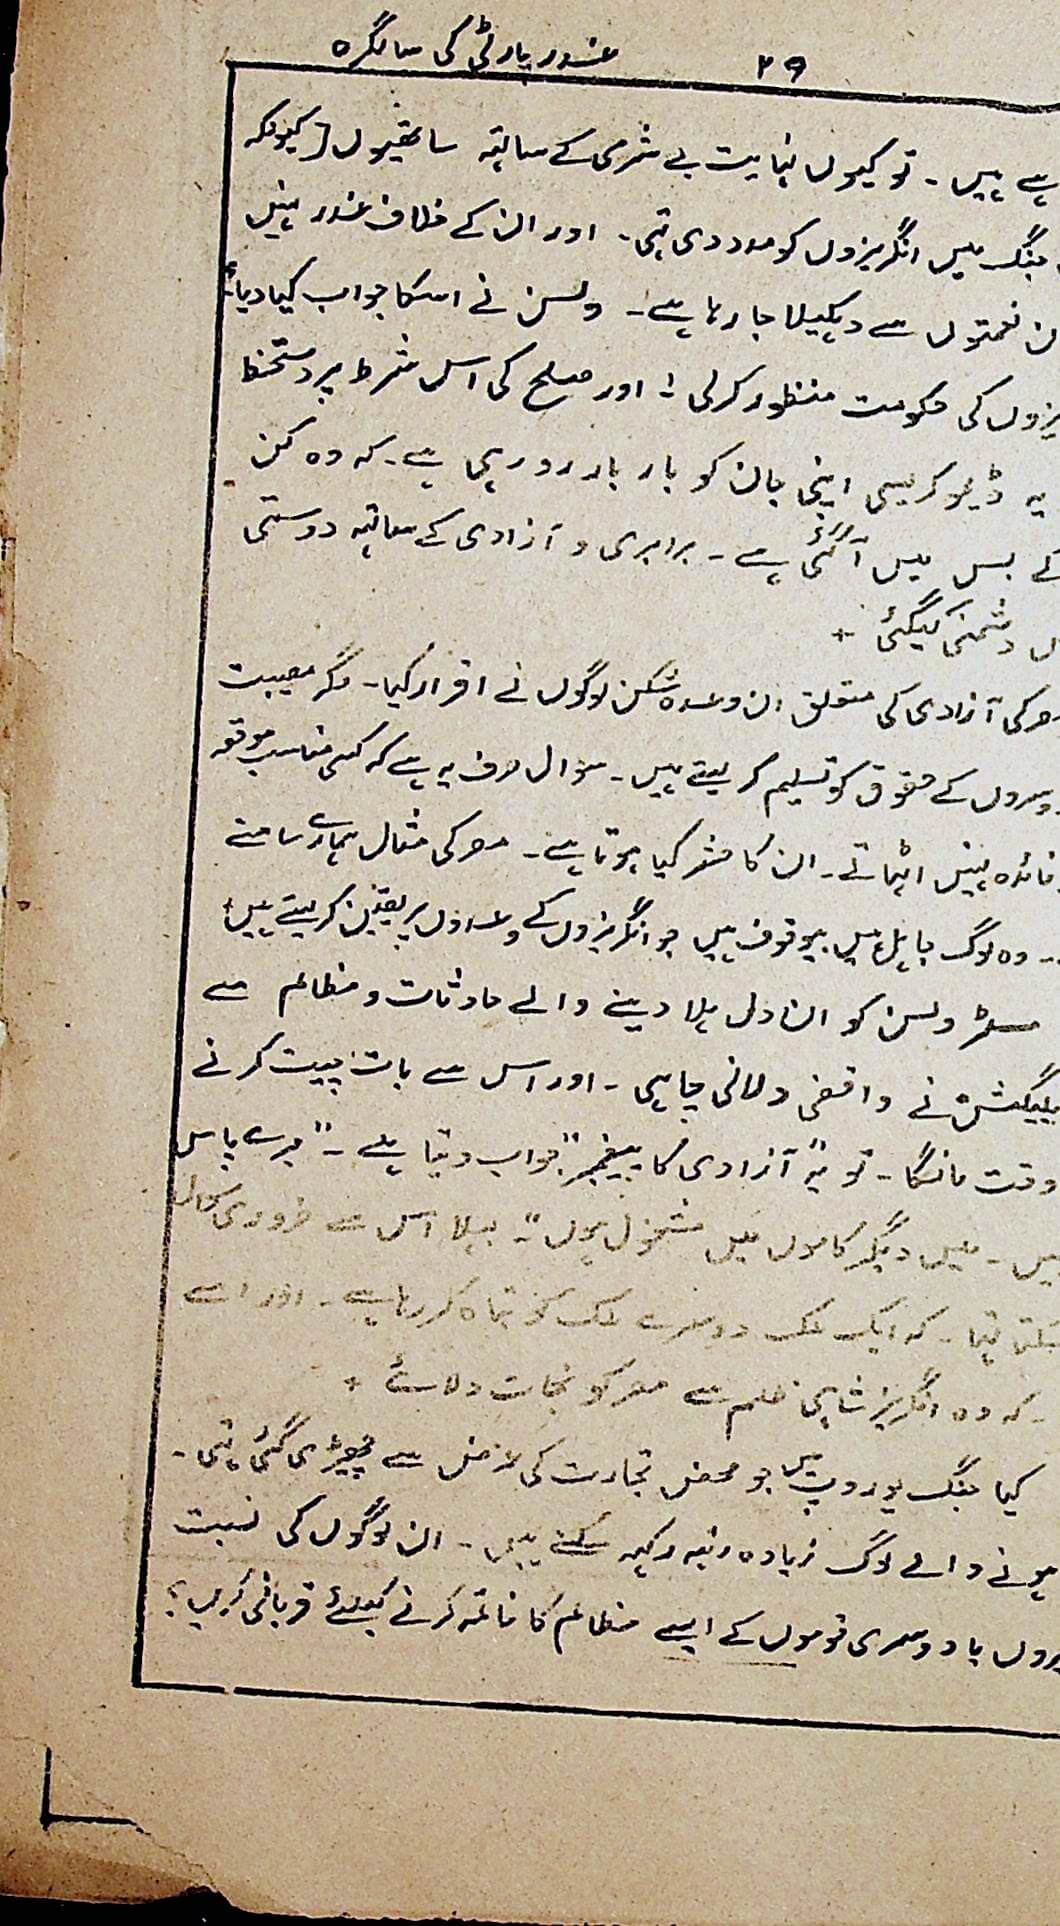 ۲۹ غدر پارٹی کی سالگرہ
ہے ہیں ۔ تو کیوں نہایت بے شرمی کے ساتھ ساتھیوں [کیونکہ
جنگ میں انگریزوں کو مدد دی تہی ۔ اور ان کے خلاف غدر نہیں
ن نعمتوں سے دہکیلا جا رہا ہے ۔ ولسن نے اسکا جواب کیا دیا؟
یزوں کی حکومت منظور کر لی ! اور صلح کی اس شرط پر دستخط
یہ ڈیموکریسی اپنی جان کو بار بار رو رہی ہے ۔ کہ وہ کن
کے بس میں آگئی ہے ۔ برابری و آزادی کے ساتہہ دوستی
دشمنی کیگئی +
صر کی آزادی کی متعلق ان وعدہ شکن لوگوں نے اقرار کیا ۔ مگر مصیبت
وسروں کے حقوق کو تسلیم کر لیتے ہیں ۔ سوال صرف یہ ہے کہ کسی مناسب موقعہ
فائدہ نہیں اٹہاتے ۔ ان کا حشر کیا ہوتا ہے ۔ مصر کی مثال ہمارے سامنے
۔ وہ لوگ جاہل ہیں بیوقوف ہیں جو انگریزوں کے وعدوں پر یقین کر لیتے ہیں +
مسٹر ولسن کو ان دل ہلا دینے والے حادثات و مظالم سے
یلیگیشن نے واقفی دلانی چاہی ۔ اور اس سے بات چیت کرنے
وقت مانگا ۔ تو یہ "آزادی کا پیغمبر" جواب دیتا ہے ۔ "میرے پاس
ہیں ۔ میں دیگر کاموں میں مشغول ہوں" ۔ بہلا اس سے ضروری کام
سکتا تہا ۔ کہ ایک ملک دوسرے ملک کو تباہ کر رہا ہے ۔ اور اسے
۔ کہ وہ انگریز شاہی ظلم سے مصر کو نجات دلائے +
کیا جنگ یوروپ میں جو محض تجارت کی غرض سے چھیڑی گئی تہی ۔
ہونے والے لوگ زیادہ رتبہ رکہہ سکتے ہیں ۔ ان لوگوں کی نسبت
یا دوسری قوموں کے ایسے مظالم کا خاتمہ کرنے کیلئے قربانی کریں ؟